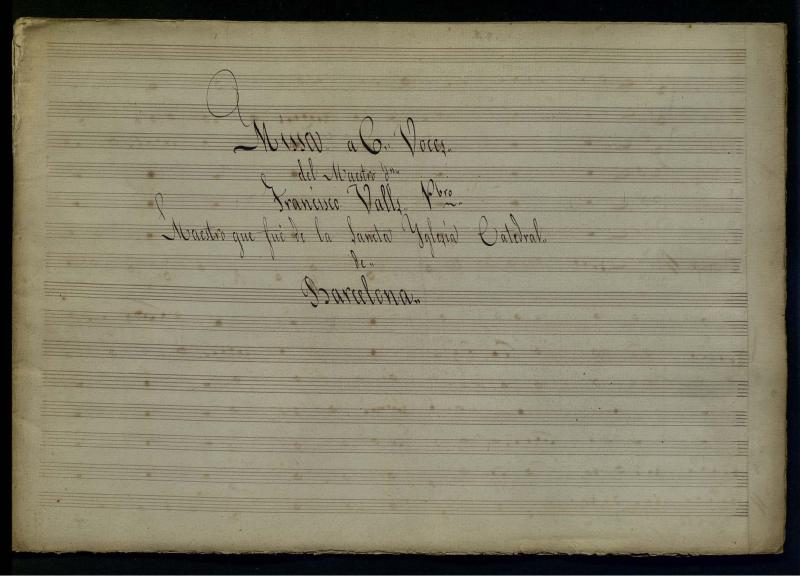 Missa a 6. Voces.
del Maestro Dn.
Francisco Valls. Pbro.
Maestro que fué de la Sancta Yglesia Catedral.
de..
Barcelona..